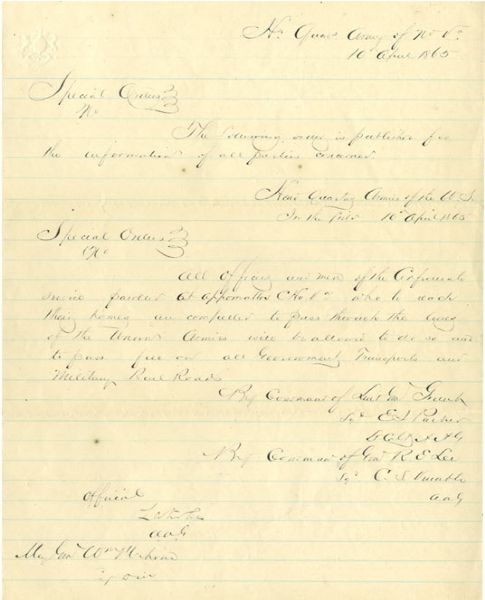 Hd Qurs Army of No Va
10 April 1865
Special Orders
No
The following order is published for
the information of all parties concerned.
Head Quarters Armies of the U.S.
In the Field 10 April 1865
Special Orders
No
All officers and men of the Confederate
service paroled at Appomattox C Ho Va who to reach
their homes are compelled to pass through the lines
of the Union Armies will be allowed to do so and
to pass free on all Government Transports and
Military Rail Roads
By Command of Lieut Gen Grant
Sgd E S Parker
A A G
By Command of Gen R E Lee
Sgd C S Venable
A A G
Official
A A G
Maj Gen Wm Mahone